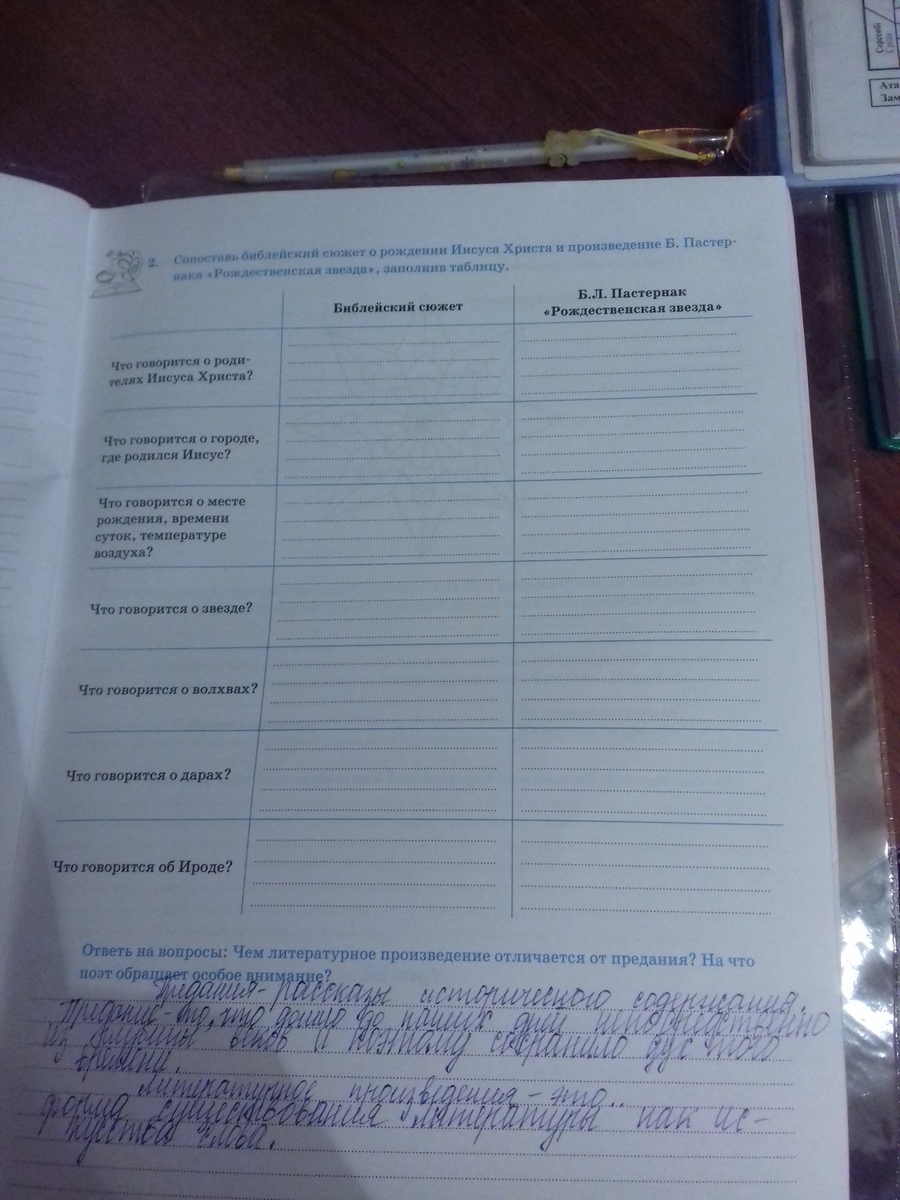 2. Сопоставь библейский сюжет о рождении Иисуса Христа и произведение Б. Пастер-
нака «Рождественская звезда», заполнив таблицу.
Библейский сюжет
Б.Л. Пастернак
«Рождественская звезда»
Что говорится о роди-
телях Иисуса Христа?
Что говорится о городе,
где родился Иисус?
Что говорится о месте
рождения, времени
суток, температуре
воздуха?
Что говорится о звезде?
Что говорится о волхвах?
Что говорится о дарах?
Что говорится об Ироде?
Ответь на вопросы: Чем литературное произведение отличается от предания? На что
поэт обращает особое внимание?
Предания - рассказы исторического содержания.
Предание - то, что дошло до наших дней непосредственно
из глубины веков и поэтому сохранило дух того
времени.
Литературное произведения - это
форма существования литературы как ис-
кусства слова.
Атa
Зам